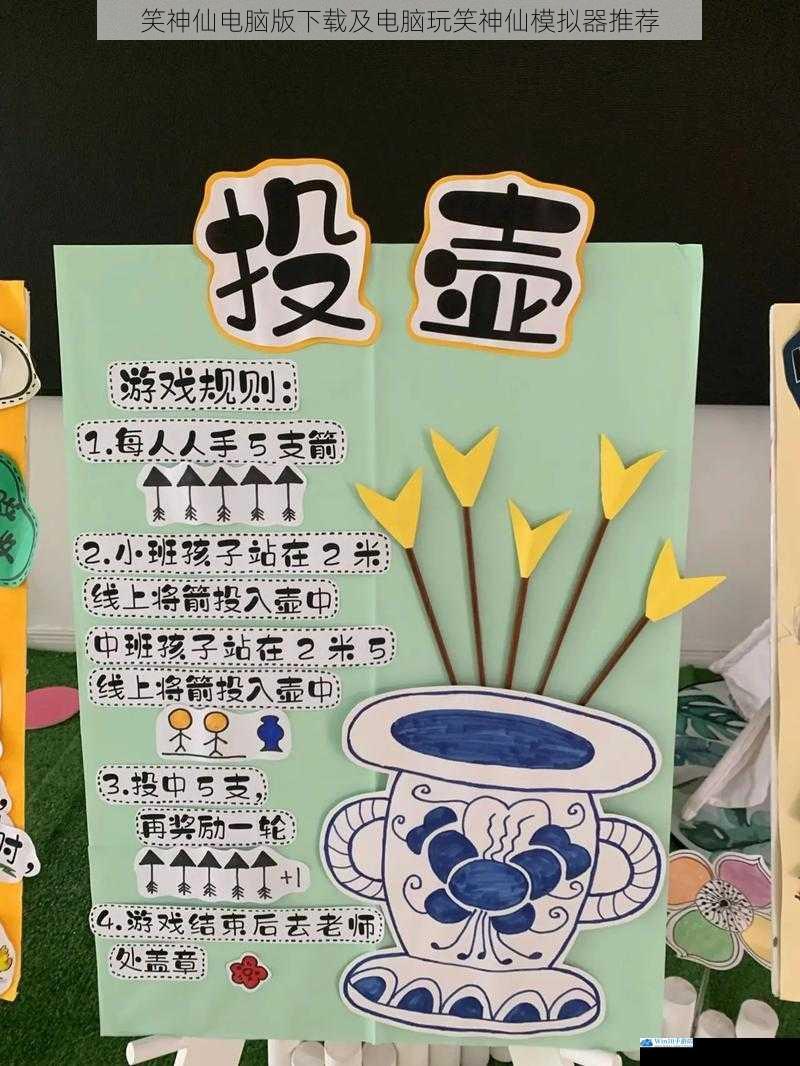 笑神仙电脑版下载及电脑玩笑神仙模拟器推荐
投壶
游戏规则:
1.每人人手5支箭
2.小班孩子站在2米
线上将箭投入壶中
中班孩子站在2米5
线上将箭投入壶中
3.投中5支,
再奖励一轮
+1
4.游戏结束后去老师
处盖章
时,
Win10手游网